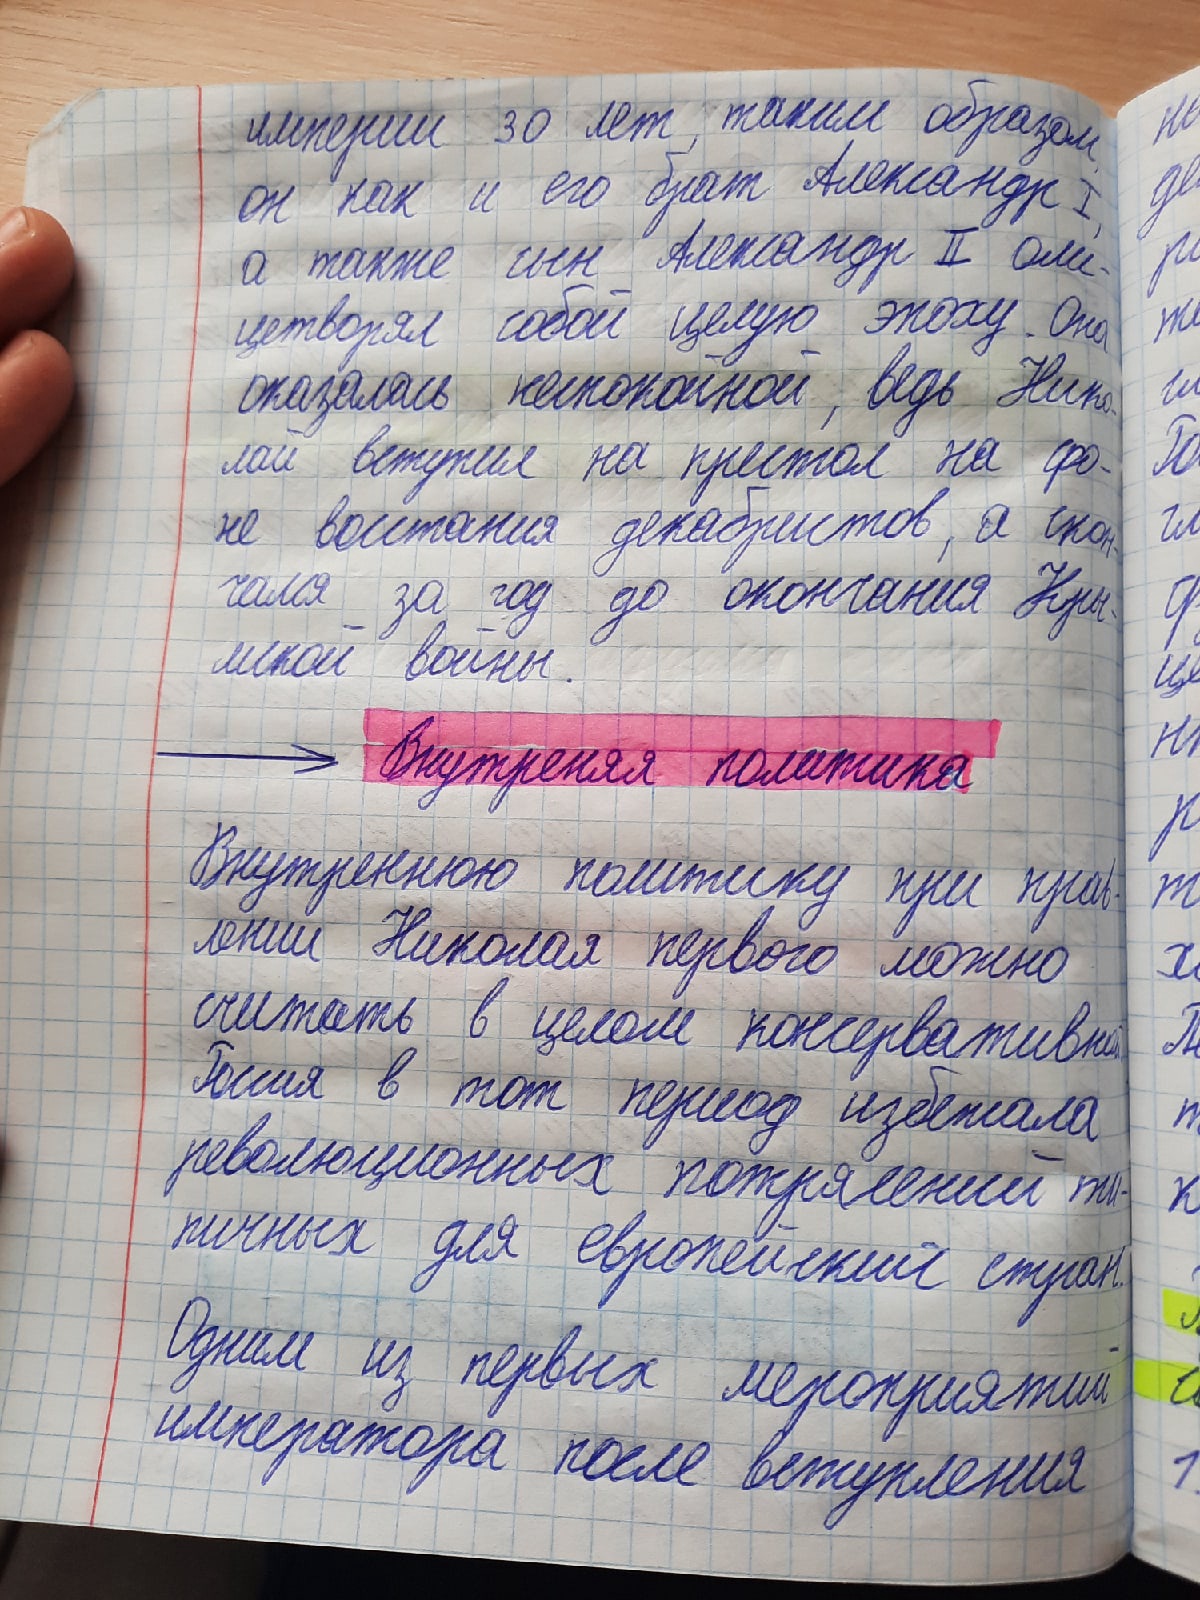 империи 30 лет, таким образом,
он как и его брат Александр I,
а также сын Александр II оли-
цетворял собой целую эпоху. Она
оказалась неспокойной, ведь Нико-
лай вступил на престол на фо-
не восстания декабристов, а скон-
чался за год до окончания Кры-
мской войны.
Внутреняя политика
Внутреннюю политику при прав-
лении Николая первого можно
считать в целом консервативной
Россия в тот период избежала
революционных потрясений ти-
пичных для европейский стран.
Одним из первых мероприятий
императора после вступления